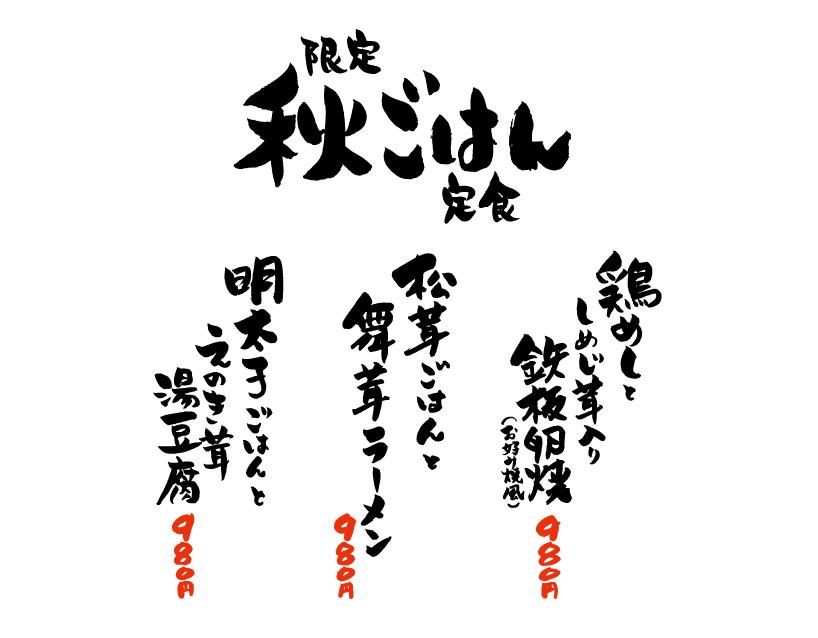 限定
秋ごはん
定食
鶏めしと
しめじ茸入り
鉄板卵焼
(お好み焼風)
980円
松茸ごはんと
舞茸ラーメン
980円
明太子ごはんと
えのき茸
湯豆腐
980円